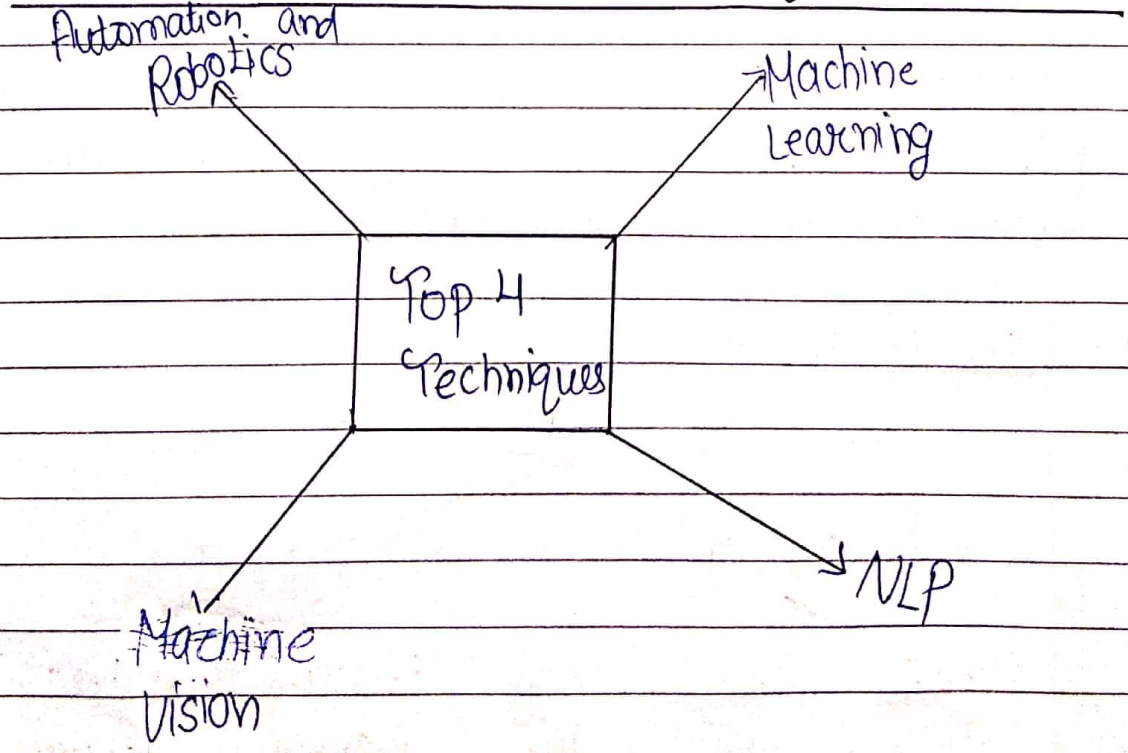 Automation and
Robotics
Machine
Learning
Top 4
Techniques
NLP
Machine
Vision